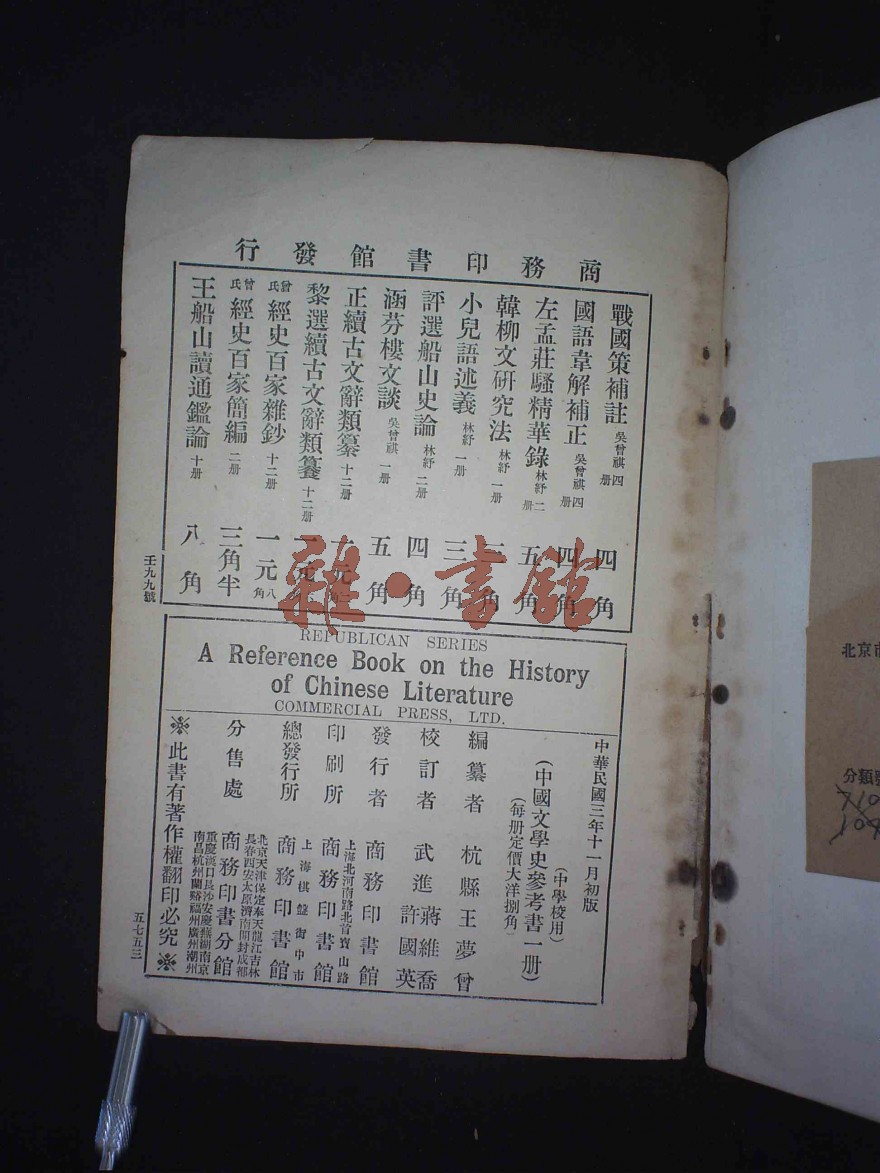 商務印書館發行
戰國策補註 吳曾祺 四册 四角
國語韋解補正 吳曾祺 四册 四角
左孟莊騷精華錄 林紓 二册 五角
韓柳文研究法 林紓 一册 角
小兒語述義 林紓 一册 三角
評選船山史論 林紓 二册 四角
涵芬樓文談 吳曾祺 一册 五角
正續古文辭類纂 十二册
黎選續古文辭類纂 十二册
曾氏經史百家雜鈔 十二册 一元八角
曾氏經史百家簡編 二册 三角半
王船山讀通鑑論 十册 八角
壬九九號
雜·書館
REPUBLICAN SERIES
A Reference Book on the History
of Chinese Literature
COMMERCIAL PRESS, LTD.
中華民國三年十一月初版
(中學校用)
(中國文學史參考書一册)
(每册定價大洋捌角)
編纂者 杭縣王夢曾
校訂者 武進蔣維喬 許國英
發行者 商務印書館
上海北河南路北首寶山路
印刷所 商務印書館
上海棋盤街中市
總發行所 商務印書館
北京天津保定奉天龍江吉林
長春西安太原濟南開封成都
分售處 商務印書分館
重慶漢口長沙安慶蕪湖南京
南昌杭州蘭谿福州廣州潮州
※此書有著作權翻印必究※
五七五三
北京市
分類